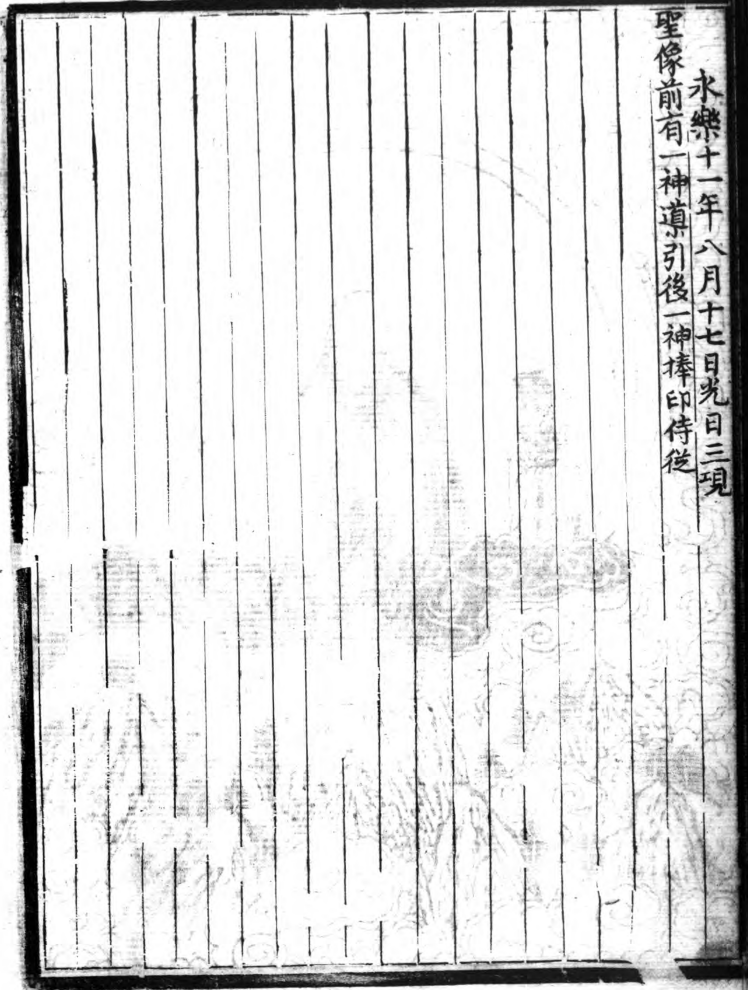 永樂十一年八月十七日光日三現
聖像前有一神導引後一神捧印侍從